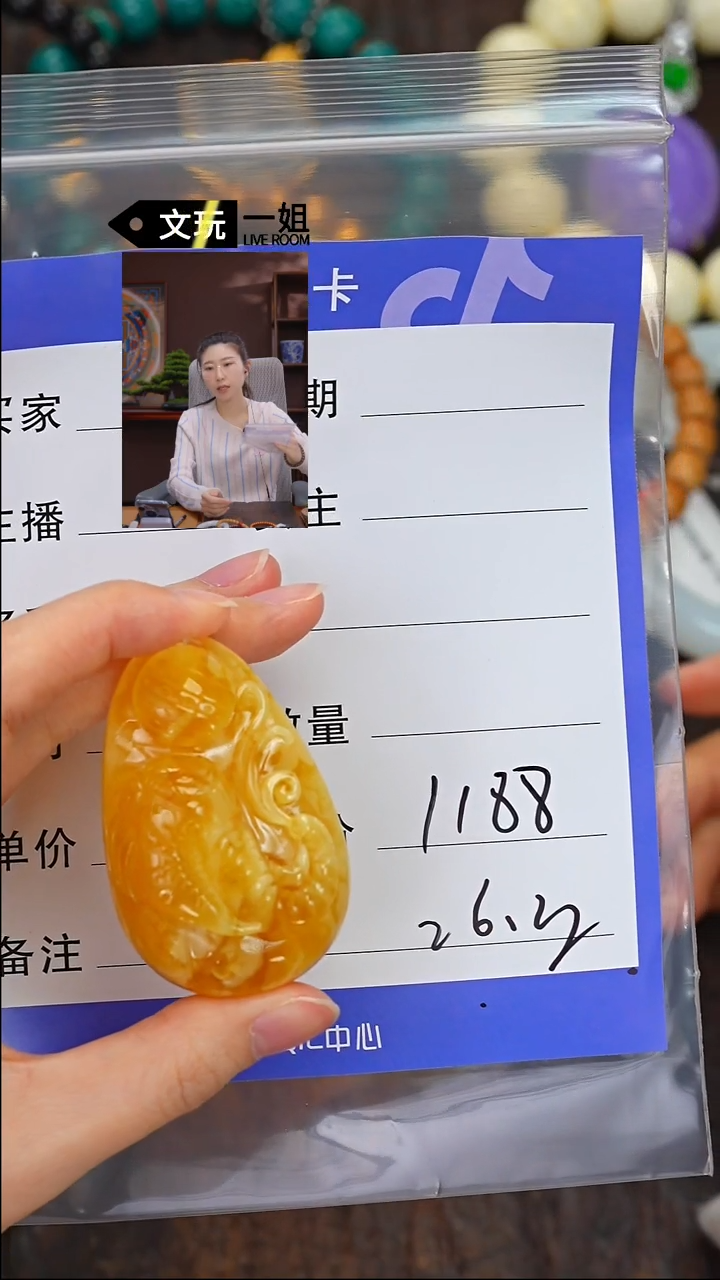 文玩 一姐
LIVE ROOM
卡
买家
期
主播
主
数量
单价
1188
备注
26.2g
中心